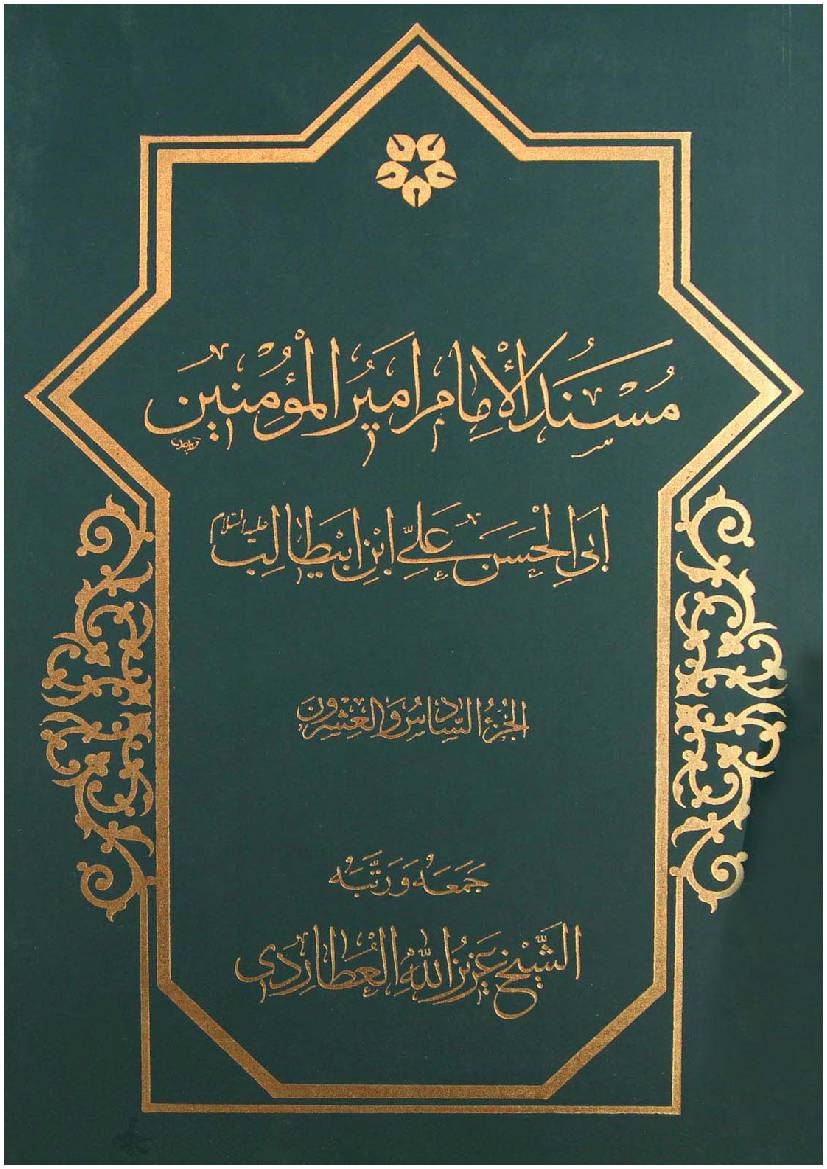 مُسْنَدُ الْإِمَامِ أَمِيرِ الْمُؤْمِنِينَ
أَبِي الْحَسَنِ عَلِيِّ ابْنِ أَبِيطَالِبٍ عليه السلام
الجزء السادس والعشرون
جَمَعَهُ وَرَتَّبَهُ
الشَّيْخُ عَزِيزُ اللهِ الْعُطَارِدِي